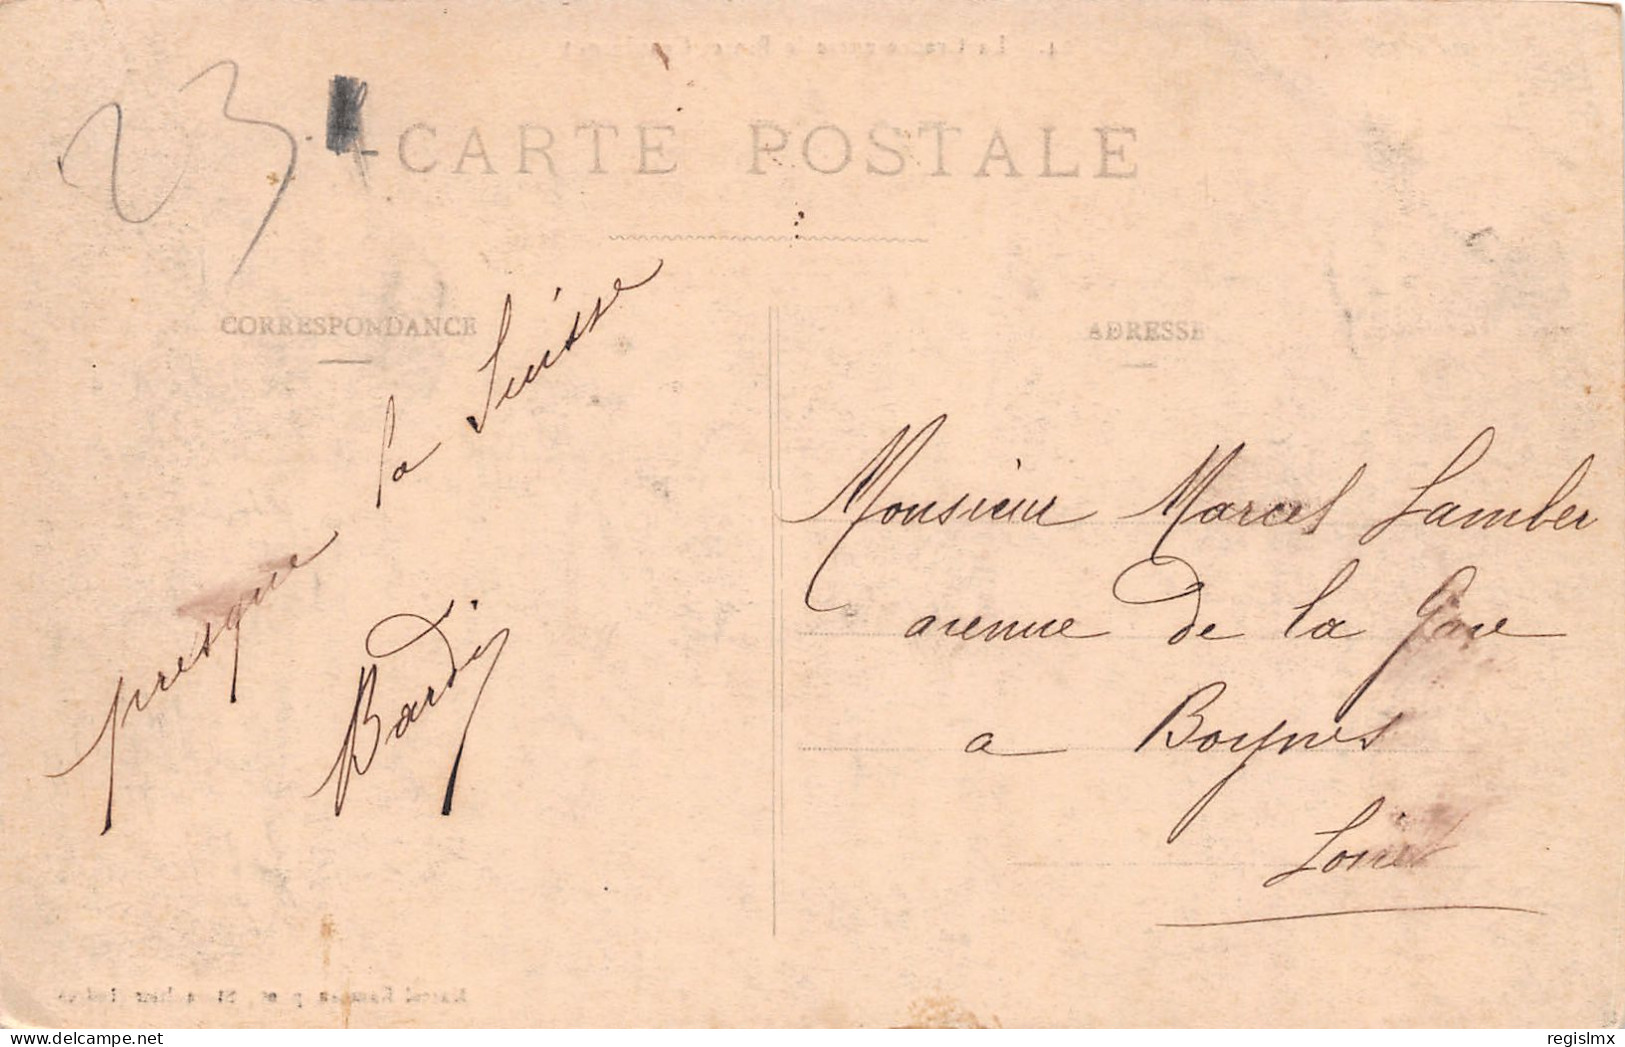 23
CARTE POSTALE
CORRESPONDANCE
presque la Suisse
Bardy
ADRESSE
Monsieur Marcel Lamber
avenue de la Gare
a Boynes
Loiret
regislmx